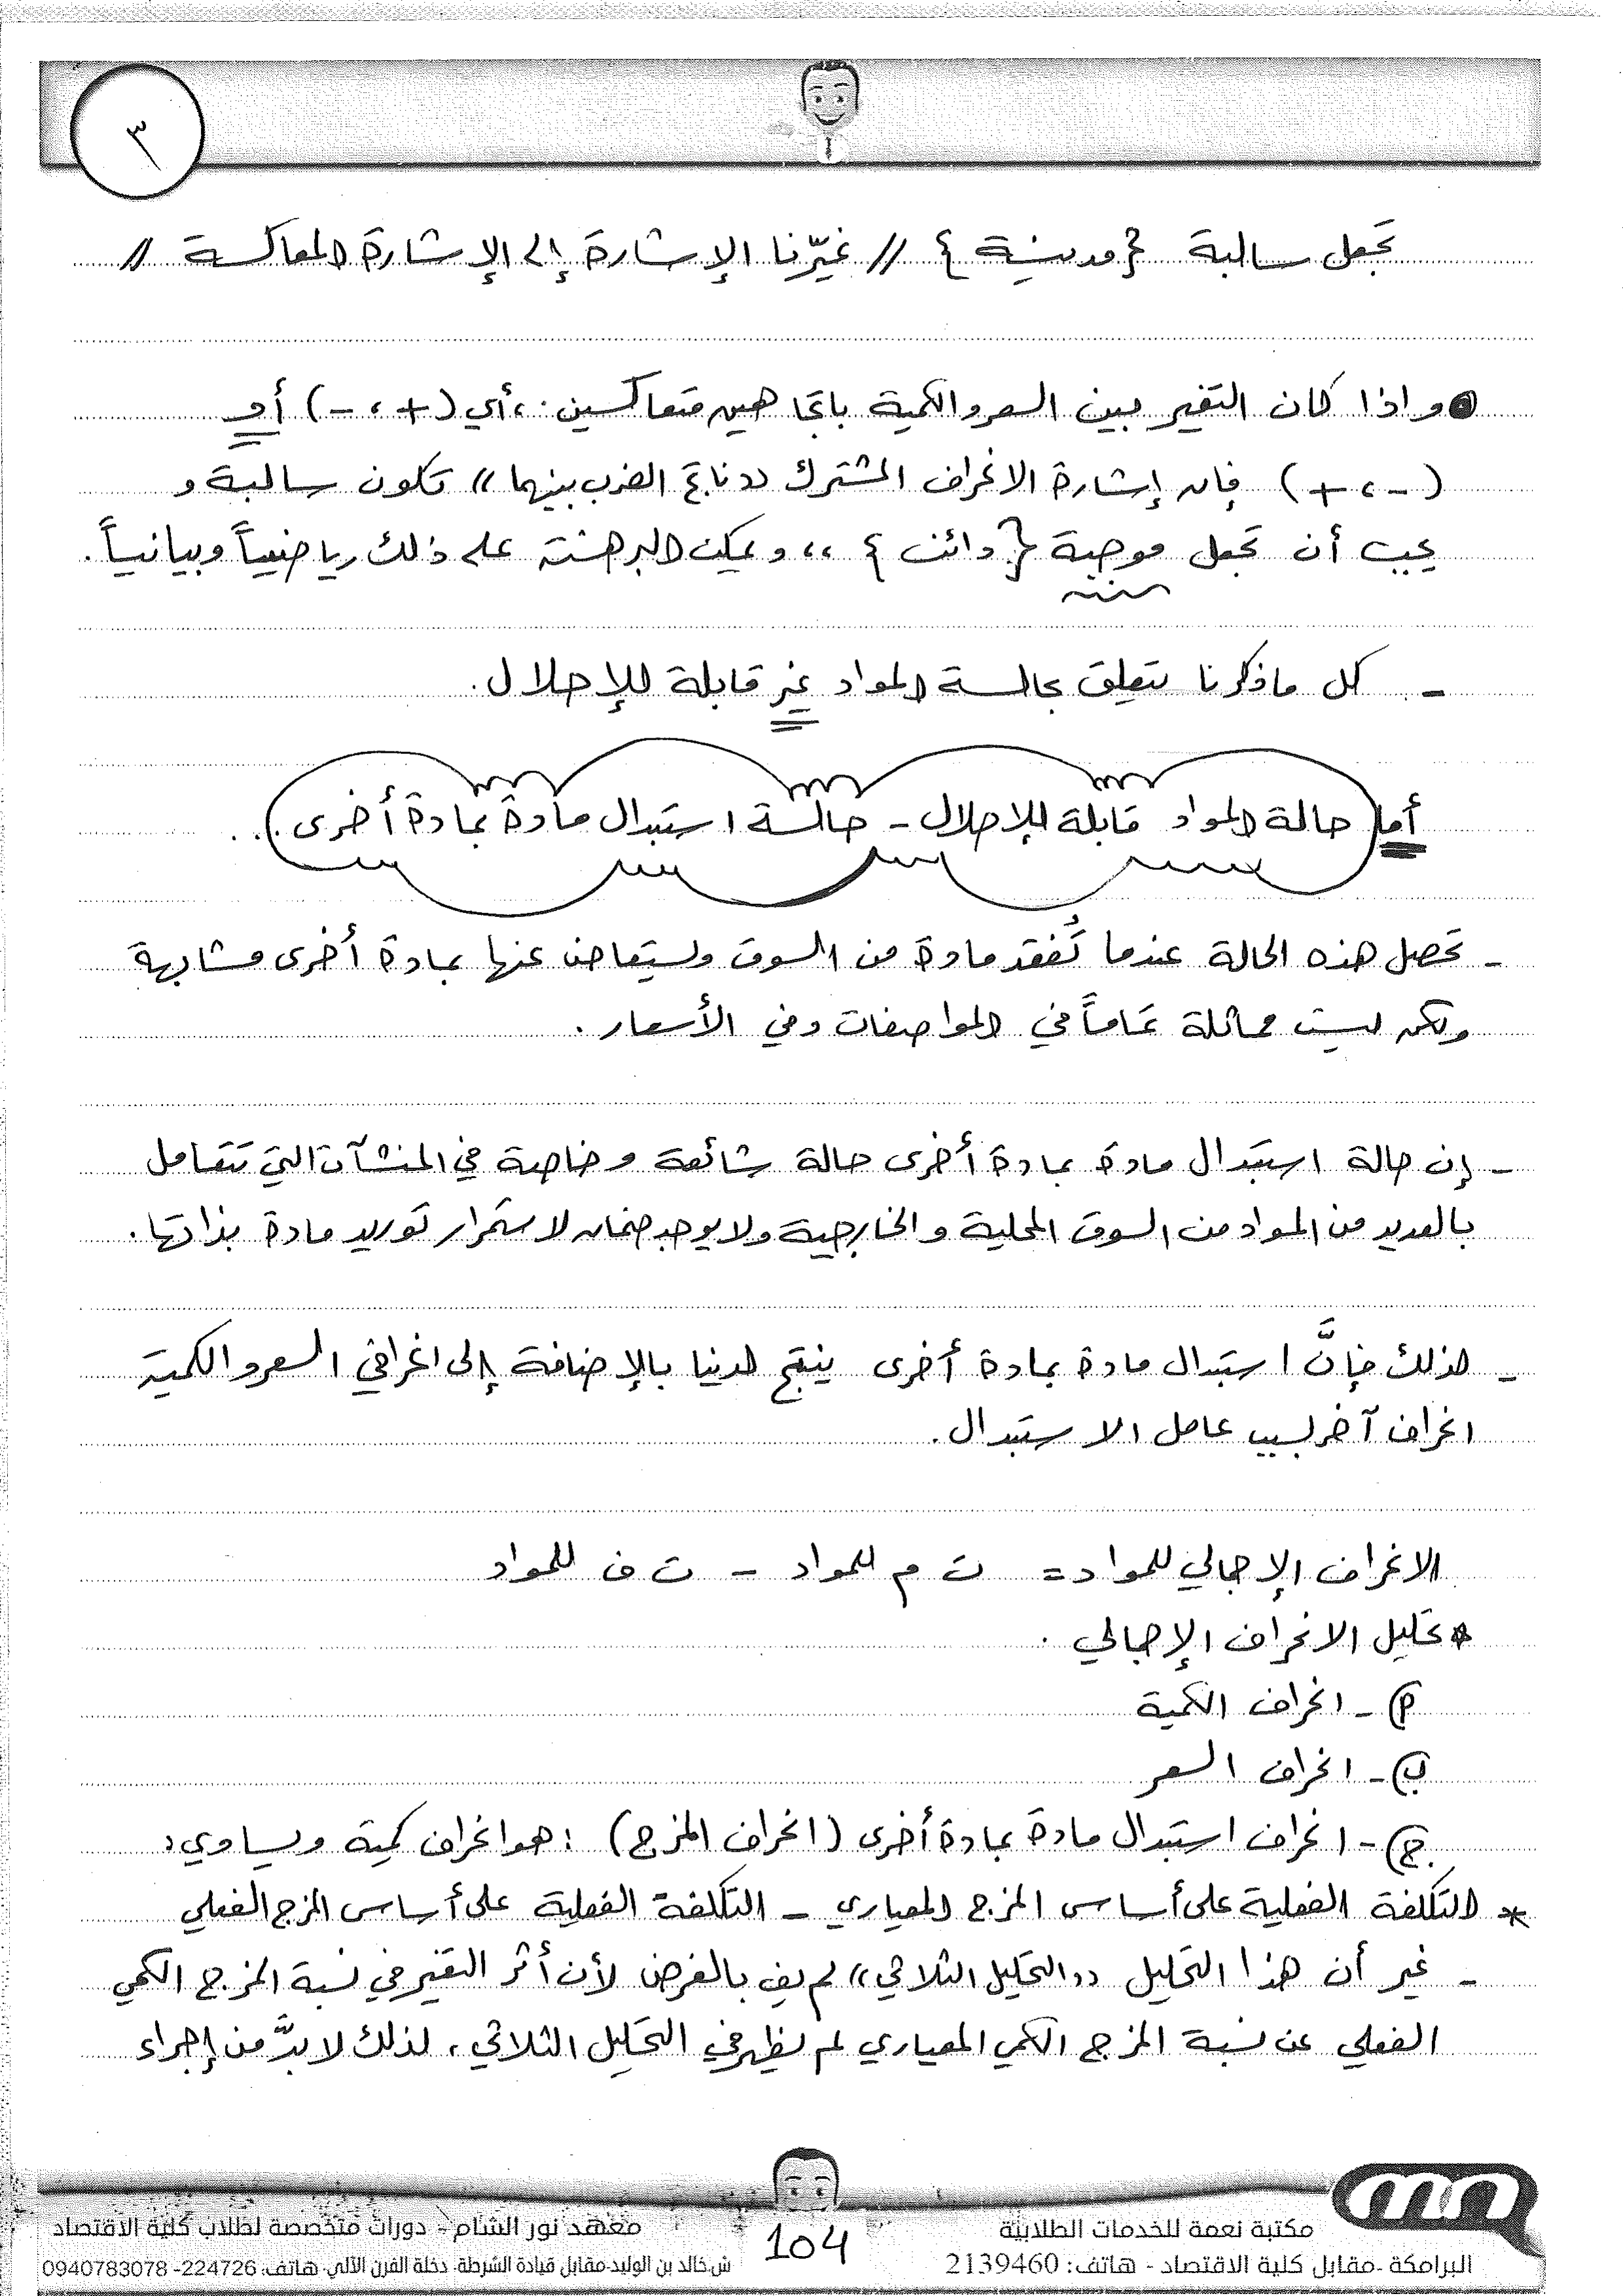 ٣
تجعل سالبة {مدينة} // غيّرنا الإشارة إلى الإشارة المعاكسة //
واذا كان التغير بين السعر والكمية باتجاهين متعاكسين ، أي (+ ، -) أو
(- ، +) فإن إشارة الانحراف المشترك ((ناتج الضرب بينهما)) تكون سالبة و
يجب أن تجعل موجبة {دائن} ،، ويمكن البرهنة على ذلك رياضياً وبيانياً .
- كل ماذكرنا يتعلق بحالة المواد غير قابلة للإحلال .
أما حالة المواد قابلة للإحلال - حالة استبدال مادة بمادة أخرى . . .
- تحصل هذه الحالة عندما تُفقد مادة من السوق ويستعاض عنها بمادة أخرى مشابهة
ولكن ليست مماثلة تماماً في المواصفات وفي الأسعار .
- إن حالة استبدال مادة بمادة أخرى حالة شائعة وخاصة في المنشآت التي تتعامل
بالعديد من المواد من السوق المحلية والخارجية ولا يوجد ضمان لاستمرار توريد مادة بذاتها .
- لذلك فإنَّ استبدال مادة بمادة أخرى ينتج لدينا بالإضافة إلى انحرافي السعر والكمية
انحراف آخر بسبب عامل الاستبدال .
الانحراف الإجمالي للمواد = ت م للمواد - ت ف للمواد
* تحليل الانحراف الإجمالي .
أ) - انحراف الكمية
ب) - انحراف السعر
ج) - انحراف استبدال مادة بمادة أخرى (انحراف المزج) : هو انحراف كمية ويساوي :
* التكلفة الفعلية على أساس المزج المعياري - التكلفة الفعلية على أساس المزج الفعلي
- غير أن هذا التحليل ((التحليل الثلاثي)) لم يفِ بالغرض لأن أثر التغير في نسبة المزج الكمي
الفعلي عن نسبة المزج الكمي المعياري لم يظهر في التحليل الثلاثي ، لذلك لا بدَّ من إجراء
مكتبة نعمة للخدمات الطلابية
البرامكة - مقابل كلية الاقتصاد - هاتف: 2139460
104
معهد نور الشام - دورات متخصصة لطلاب كلية الاقتصاد
ش.خالد بن الوليد-مقابل قيادة الشرطة- دخلة الفرن الآلي- هاتف: 224726- 0940783078